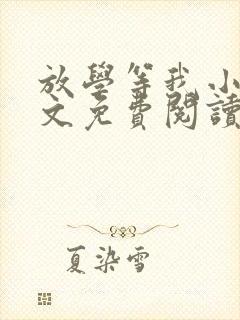 放學等我 小
文免費閱讀
夏染雪